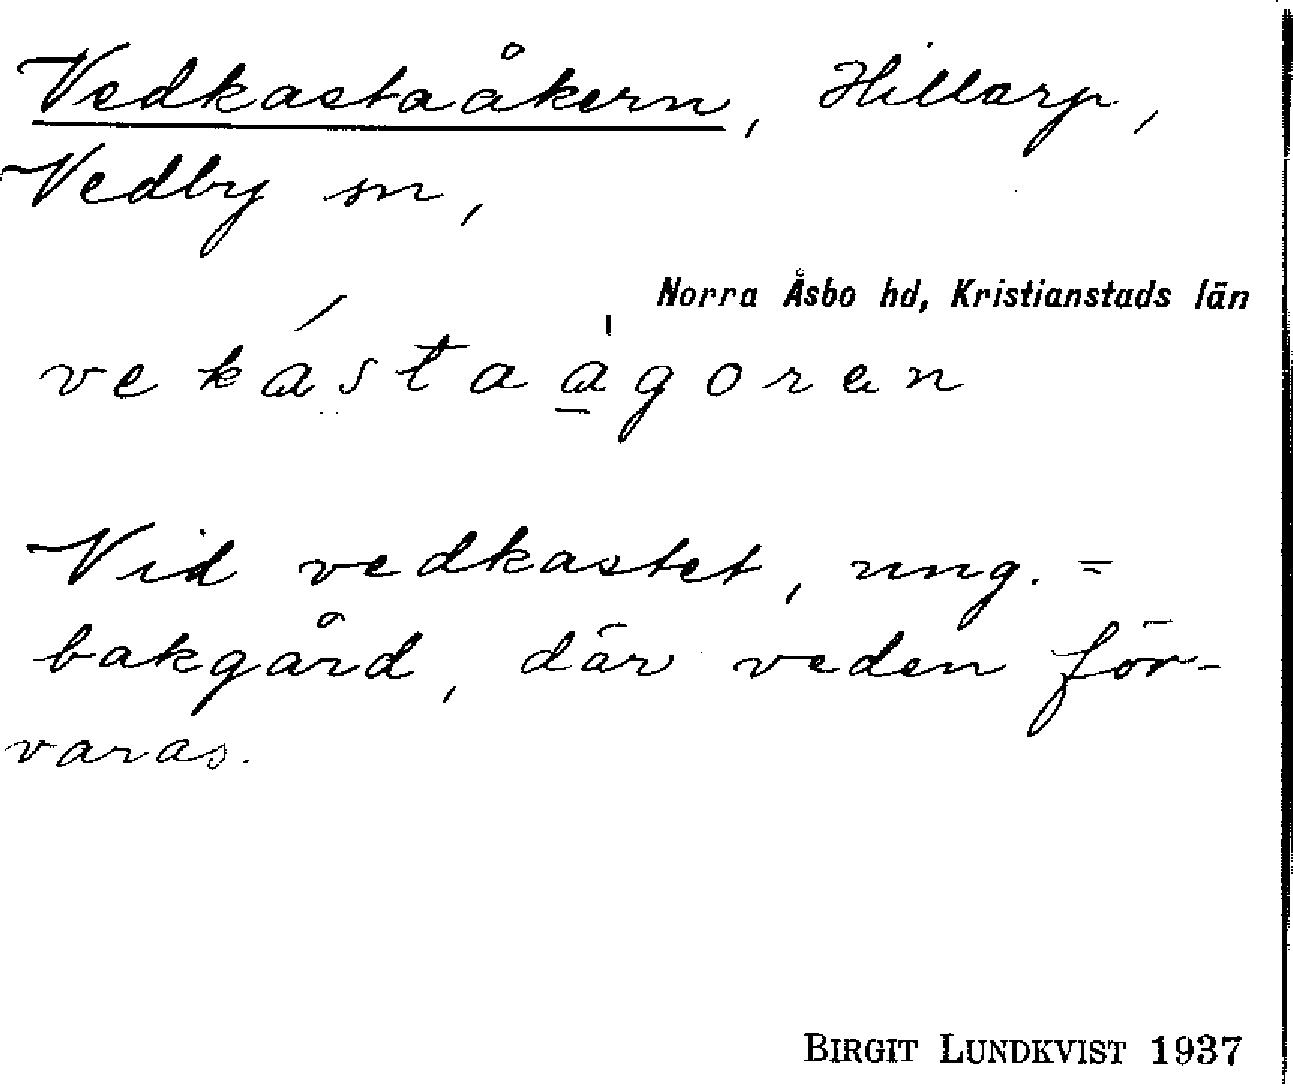 Vedkastaåkern, Hillarp,
Vedby sn,
Norra Åsbo hd, Kristianstads län
vekástaågoren
Vid vedkastet, ung. =
bakgård, där veden för-
varas.
BIRGIT LUNDKVIST 1937